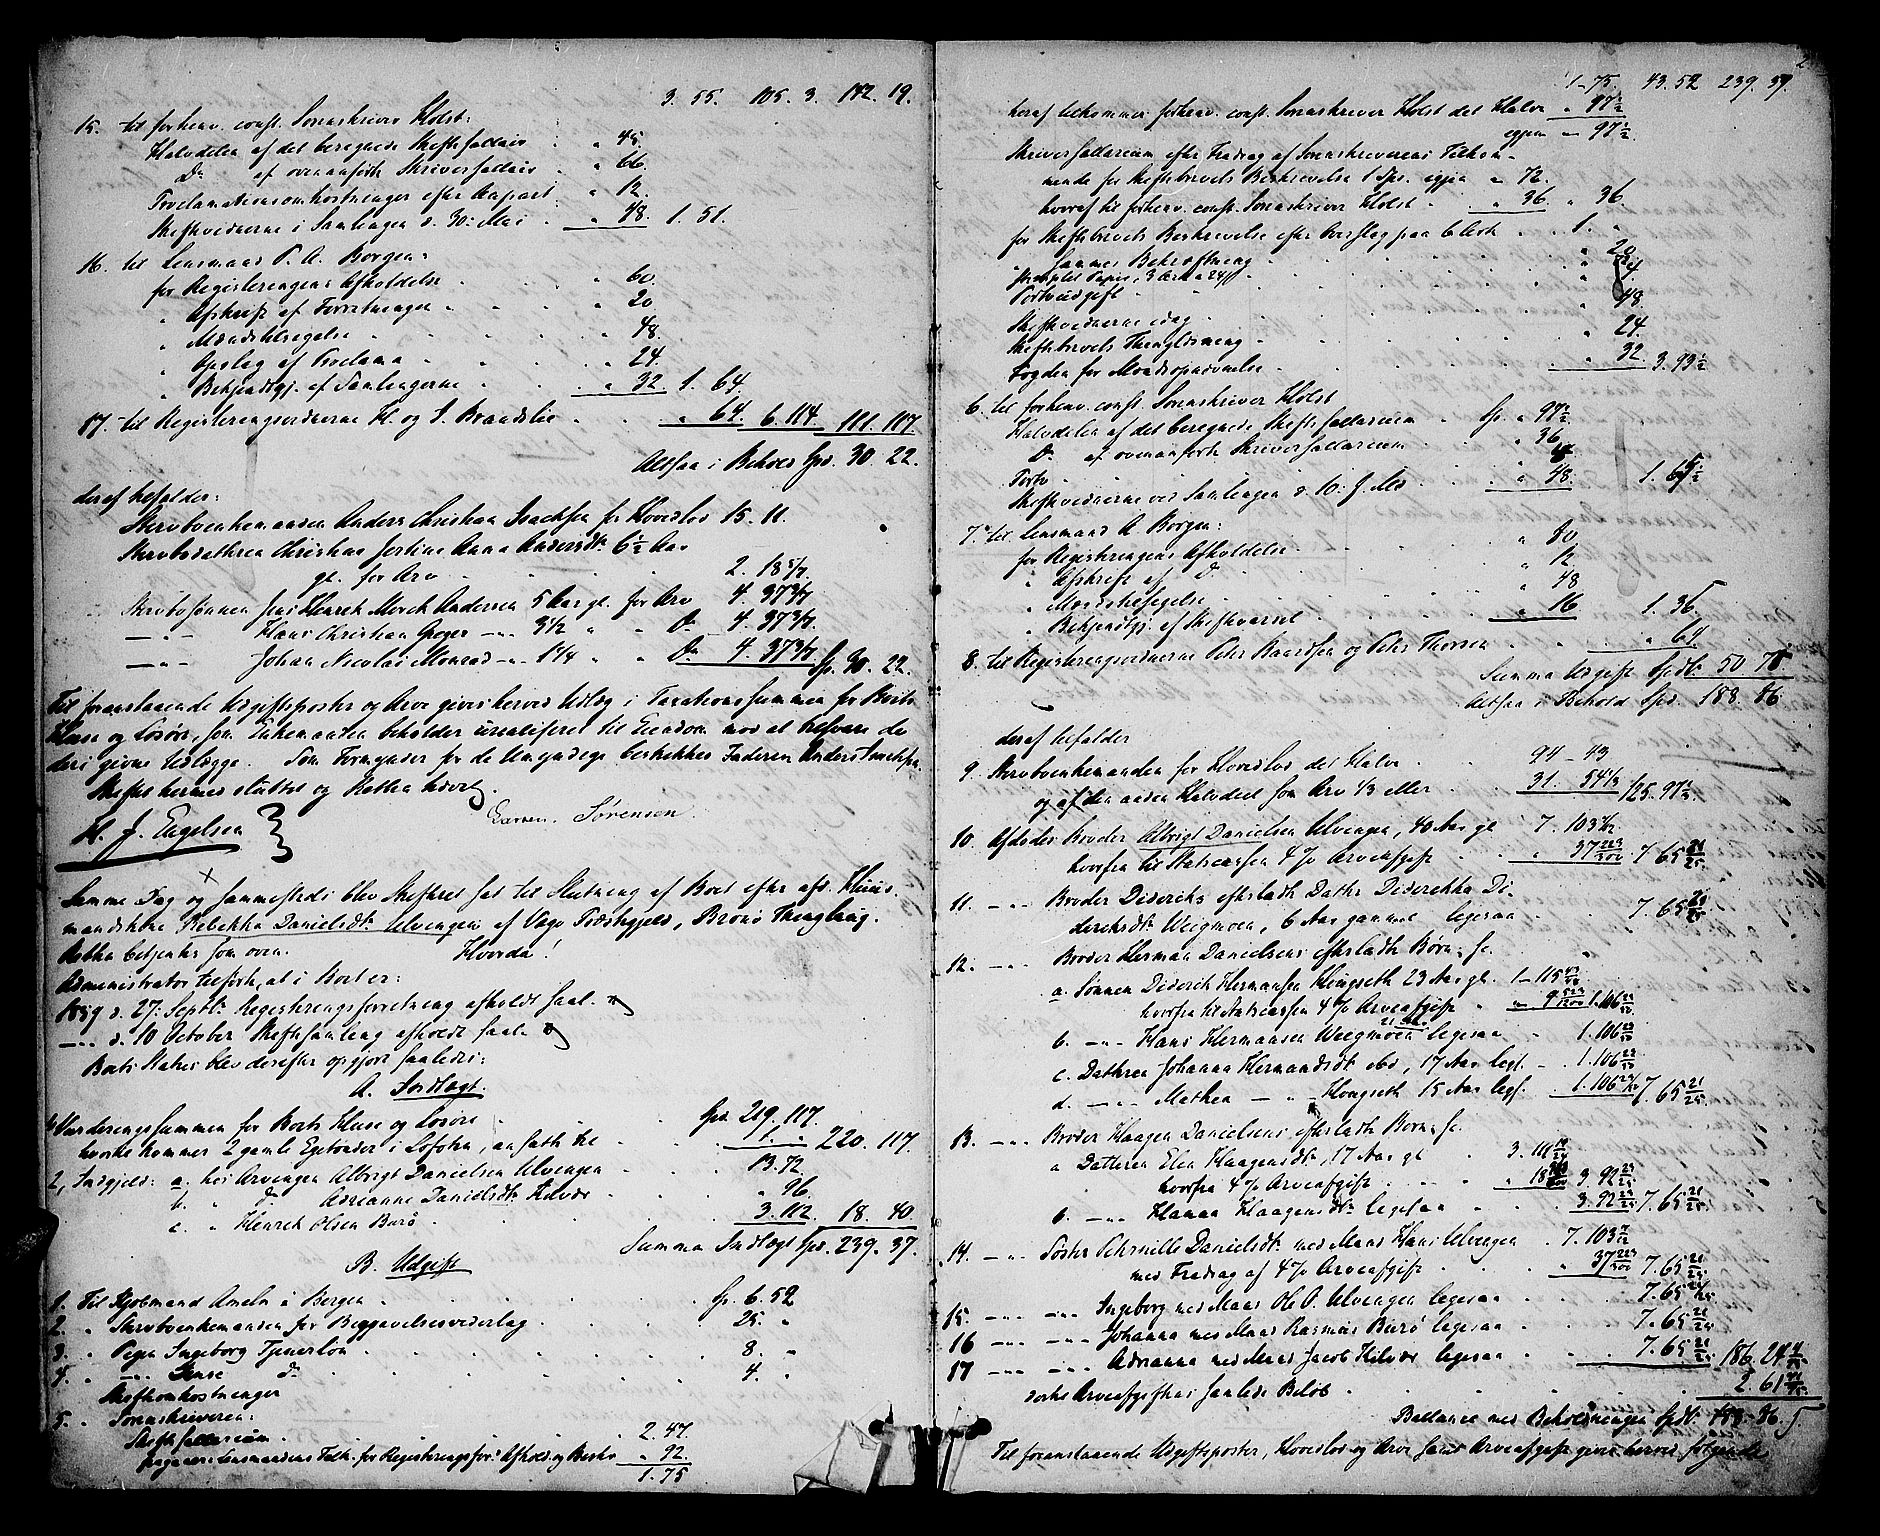 3. 55. 105. 3. 142. 19.
15. til forhenv. const. Sorenskriver Holst:
Halvdelen af det beregnede Skiftesallair . " 45.
Do af ovenanførte Skriversallair . " 66.
Proclamationsomkostninger efter Rapart . " 12.
Skiftevidnerne i Samlingen d. 30: Mai . " 48. 1. 51.
16. til Lensmand P. A. Borgen:
for Registreringens Afholdelse . . . " 60.
" Afskrift af Forretningen . . . " 20
" Mændstilsigelse . . . " 48.
" Opslag af Proclama . . . " 24.
" Bekjendtgj. af Samlingerne . . . " 32. 1. 64.
17. til Registreringsvidnerne H. og S. Brandslie . . " 64. 6. 114. 111. 117.
Altsaa i Behold Spd. 30. 22.
deraf tilfalder:
Stervboenkemanden Anders Christian Isachsen for Hovedlod 15. 11.
Stervbodatteren Christine Jertine Anna Andersdtr. 6½ Aar
gl. for Arv . . . 2. 18 5/7.
Stervbosønnen Jens Henrik Morck Andersen 5 Aar gl. for Arv 4. 37 3/7.
—"— Hans Christian Greger —"— 3½ " " Do 4. 37 3/7.
—"— Johan Nicolai Monrad —"— 1¼ " " Do 4. 37 3/7. Sp. 30. 22.
Til foranstaaende Udgiftsposter og Arv gives herved Udlæg i Taxationssummen for Boets
Huse og Løsøre, som Enkemanden beholder urealiseret til Eiendom mod at tilsvare de
deri givne Udlægge. Som Formynder for de Umyndige beskikkes Faderen Anders Isachsen.
Skiftet hermed sluttet og Retten hævet.
H. J. Engelsen Sørensen
Samme Dag og sammesteds blev Skifteret sat til Slutning af Boet efter afd. Huus-
mandskone Rebekka Danielsdtr. Ulvingen af Vego Præstegjeld, Brønø Thinglaug.
Retten betjentes som oven. Hvorda!
Administrator tilførte, at i Boet er:
1859 d. 27: Septbr. Registreringsforretning afholdt saal.
—"— d. 10 October Skiftesamling afholdt saal.
Boets Status blev derefter opgjort saaledes:
A. Indtægt.
1, Vurderingssummen for Boets Huse og Løsøre . Spd. 219. 117.
hvortil kommer 2 gamle Egetønder i Lofoten, ansatte til . 1. " 220. 117.
2, Indgjeld: a. hos Arvingen Albrigt Danielsen Ulvingen . . 13. 72.
b. " Do Adrianne Danielsdtr. Kilvær . . " 96.
c. " Henrik Olsen Burø . . 3. 112. 18. 40.
Summa Indtægt Spd. 239. 37.
B. Udgift
1. Til Kjøbmand Ameln i Bergen . . . Sp. 6. 52
2. " Stervboenkemanden for Begravelsesvederlag . . . 25. "
3. " Pigen Ingeborg Tjenerløn . . . 8. "
4. " —"— Do . . . 4. "
Skifteomkostninger
5. " Sorenskriveren:
Skiftesallarium . . . 2. 47.
" 92.
1. 75
1. 75. 43. 52 239. 37.
heraf tilkommer forhenv. const. Sorenskriver Holst det Halve " 97½
igjen " 97½
Skriversallarium efter Fradrag af Sorenskriverens Tilkom-
mende for Skiftebrevets Beskrivelse 1 Spd. igjen " 72.
hvoraf til forhenv. const. Sorenskriver Holst . " 36. " 36
for Skiftebrevets Beskrivelse efter Overslag paa 6 Ark . . 1. "
" Sammes Bekræftning . . . " 20
Stemplet Papir, 3 Ark a 24
Portoudgift . . . " 4.
Skiftevidnerne idag . . . " 48
Skiftebrevets Thinglysning . . . " 24
Fogden for . . . " 32. 3. 93½
6. til forhenv. const. Sorenskriver Holst
Halvdelen af det beregnede Skiftesallarium . Sp. " 97½
Do af ovenanførte Skriversallarium . " 36.
Porto
Skiftevidnerne ved Samlingen d. 10: f. Md . . " 48. 1. 65½
7. til Lensmand A. Borgen:
for Registreringens Afholdelse . . . " 80
" Afskrift af Do . . . " 12
" Mændstilsigelse . . . " 48
" Bekjendtgj. af Skiftevarsel . . . " 16 1. 36.
8. til Registreringsvidnerne Peter Baardsen og Peter Thoresen . . " 64
Summa Udgift Spdlr. 50 71
Altsaa i Behold Spd. 188. 86
deraf tilfalder
9. Stervboenkemanden for Hovedlod det Halve . . 94 – 43
og af den anden Halvdeel som Arv 1/3 eller . . 31. 54 1/3 125. 97⅓.
10. Afdødes Broder Albrigt Danielsen Ulvingen, 40 Aar gl 7. 103 7/12
hvorfra til Statscassen 4% Arveafgift . . " 37 223/300 7. 65 21/25
11. —"— Broder Dideriks efterladte Datter Diderikka Di-
deriksdtr. Weigmoen, 6 Aar gammel ligesaa . . 7. 65 21/25
12. —"— Broder Herman Danielsens efterladte Børn, s.
a. Sønnen Diderik Hermansen Kongseth 23 Aar gl. 1 – 115
hvorfra til Statscassen 4% Arveafgift . " 9 1. 106
21 Aar
b. —"— Hans Hermansen Weigmoen ligesaa . . 1. 106
c. Datteren Johanna Hermandsdtr ibd, 17 Aar liges. . 1. 106
d. —"— Mathea —"— Kongseth 15 Aar liges. . 1. 106 7. 65 21/25
13. —"— Broder Haagen Danielsens efterladte Børn, s.
a Datteren Elen Haagensdtr, 17 Aar gl . 3. 111
hvorfra 4% Arveafgift . . " 18 3. 92
b. —"— Hanna Haagensdtr ligesaa . . 3. 92 7. 65 21/25
14. —"— Søster Pernille Danielsdtr. med Mand Hans Ulvingen . 7. 103 7/12
med Fradrag af 4% Arveafgift . . " 37 223/300 7. 65 21/25
15. —"— —"— Ingeborg med Mand Ole P. Ulvingen ligesaa . . 7. 65 21/25
16 —"— —"— Johanna med Mand Rasmus Burø ligesaa . . 7. 65 21/25
17 —"— —"— Adrianna med Mand Jacob Kilvær ligesaa . . 7. 65 21/25 186. 24
dertil Arveafgiftens samlede Beløb . . . 2. 61
Ballance med Beholdningen Spdlr. 188. 86.
Til foranstaaende Udgiftsposter, Hovedlod og Arv samt Arveafgift gives herved følgende